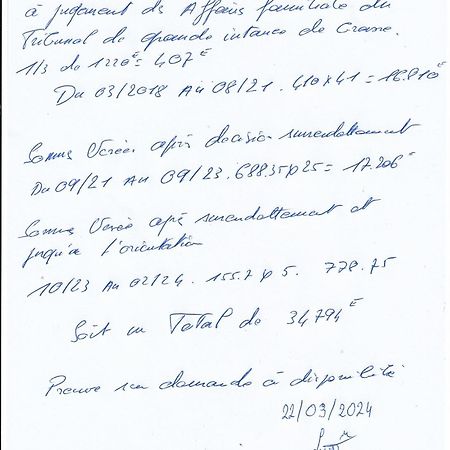 à jugement des Affaires familiale du
Tribunal de grande instance de Grasse.
1/3 de 1220€ = 407€
Du 03/2018 Au 08/21 . 410 x 41 = 16.810€
Somme Versée après décision surendettement
Du 09/21 Au 09/23 . 688.35 x 25 = 17.206€
Somme Versée après surendettement et
jusqu'à l'orientation
10/23 Au 02/24 . 155.7 x 5 . 778.75
Soit un Total de 34794€
Preuve sur demande à disponibilité
22/03/2024